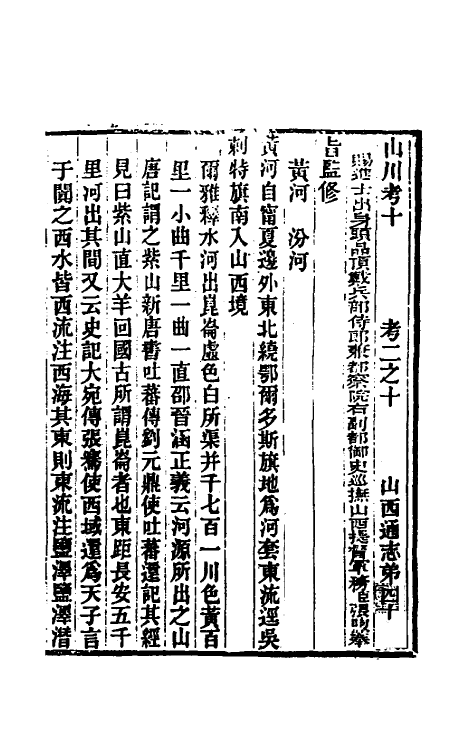 山川考十　考二之十　山西通志第四十
賜進士出身頭品頂戴兵部侍郎兼都察院右副都御史巡撫山西提督軍務張煦奉
旨監修
黃河　汾河
黃河自甯夏邊外東北繞鄂爾多斯旗地爲河套東流逕吳
剌特旗南入山西境
爾雅釋水河出崑崙虛色白所渠并千七百一川色黃百
里一小曲千里一曲一直邵晉涵正義云河源所出之山
唐記謂之紫山新唐書吐蕃傳劉元鼎使吐蕃還記其經
見曰紫山直大羊回國古所謂崑崙者也東距長安五千
里河出其間又云史記大宛傳張騫使西域還爲天子言
于闐之西水皆西流注西海其東則東流注鹽澤鹽澤潛